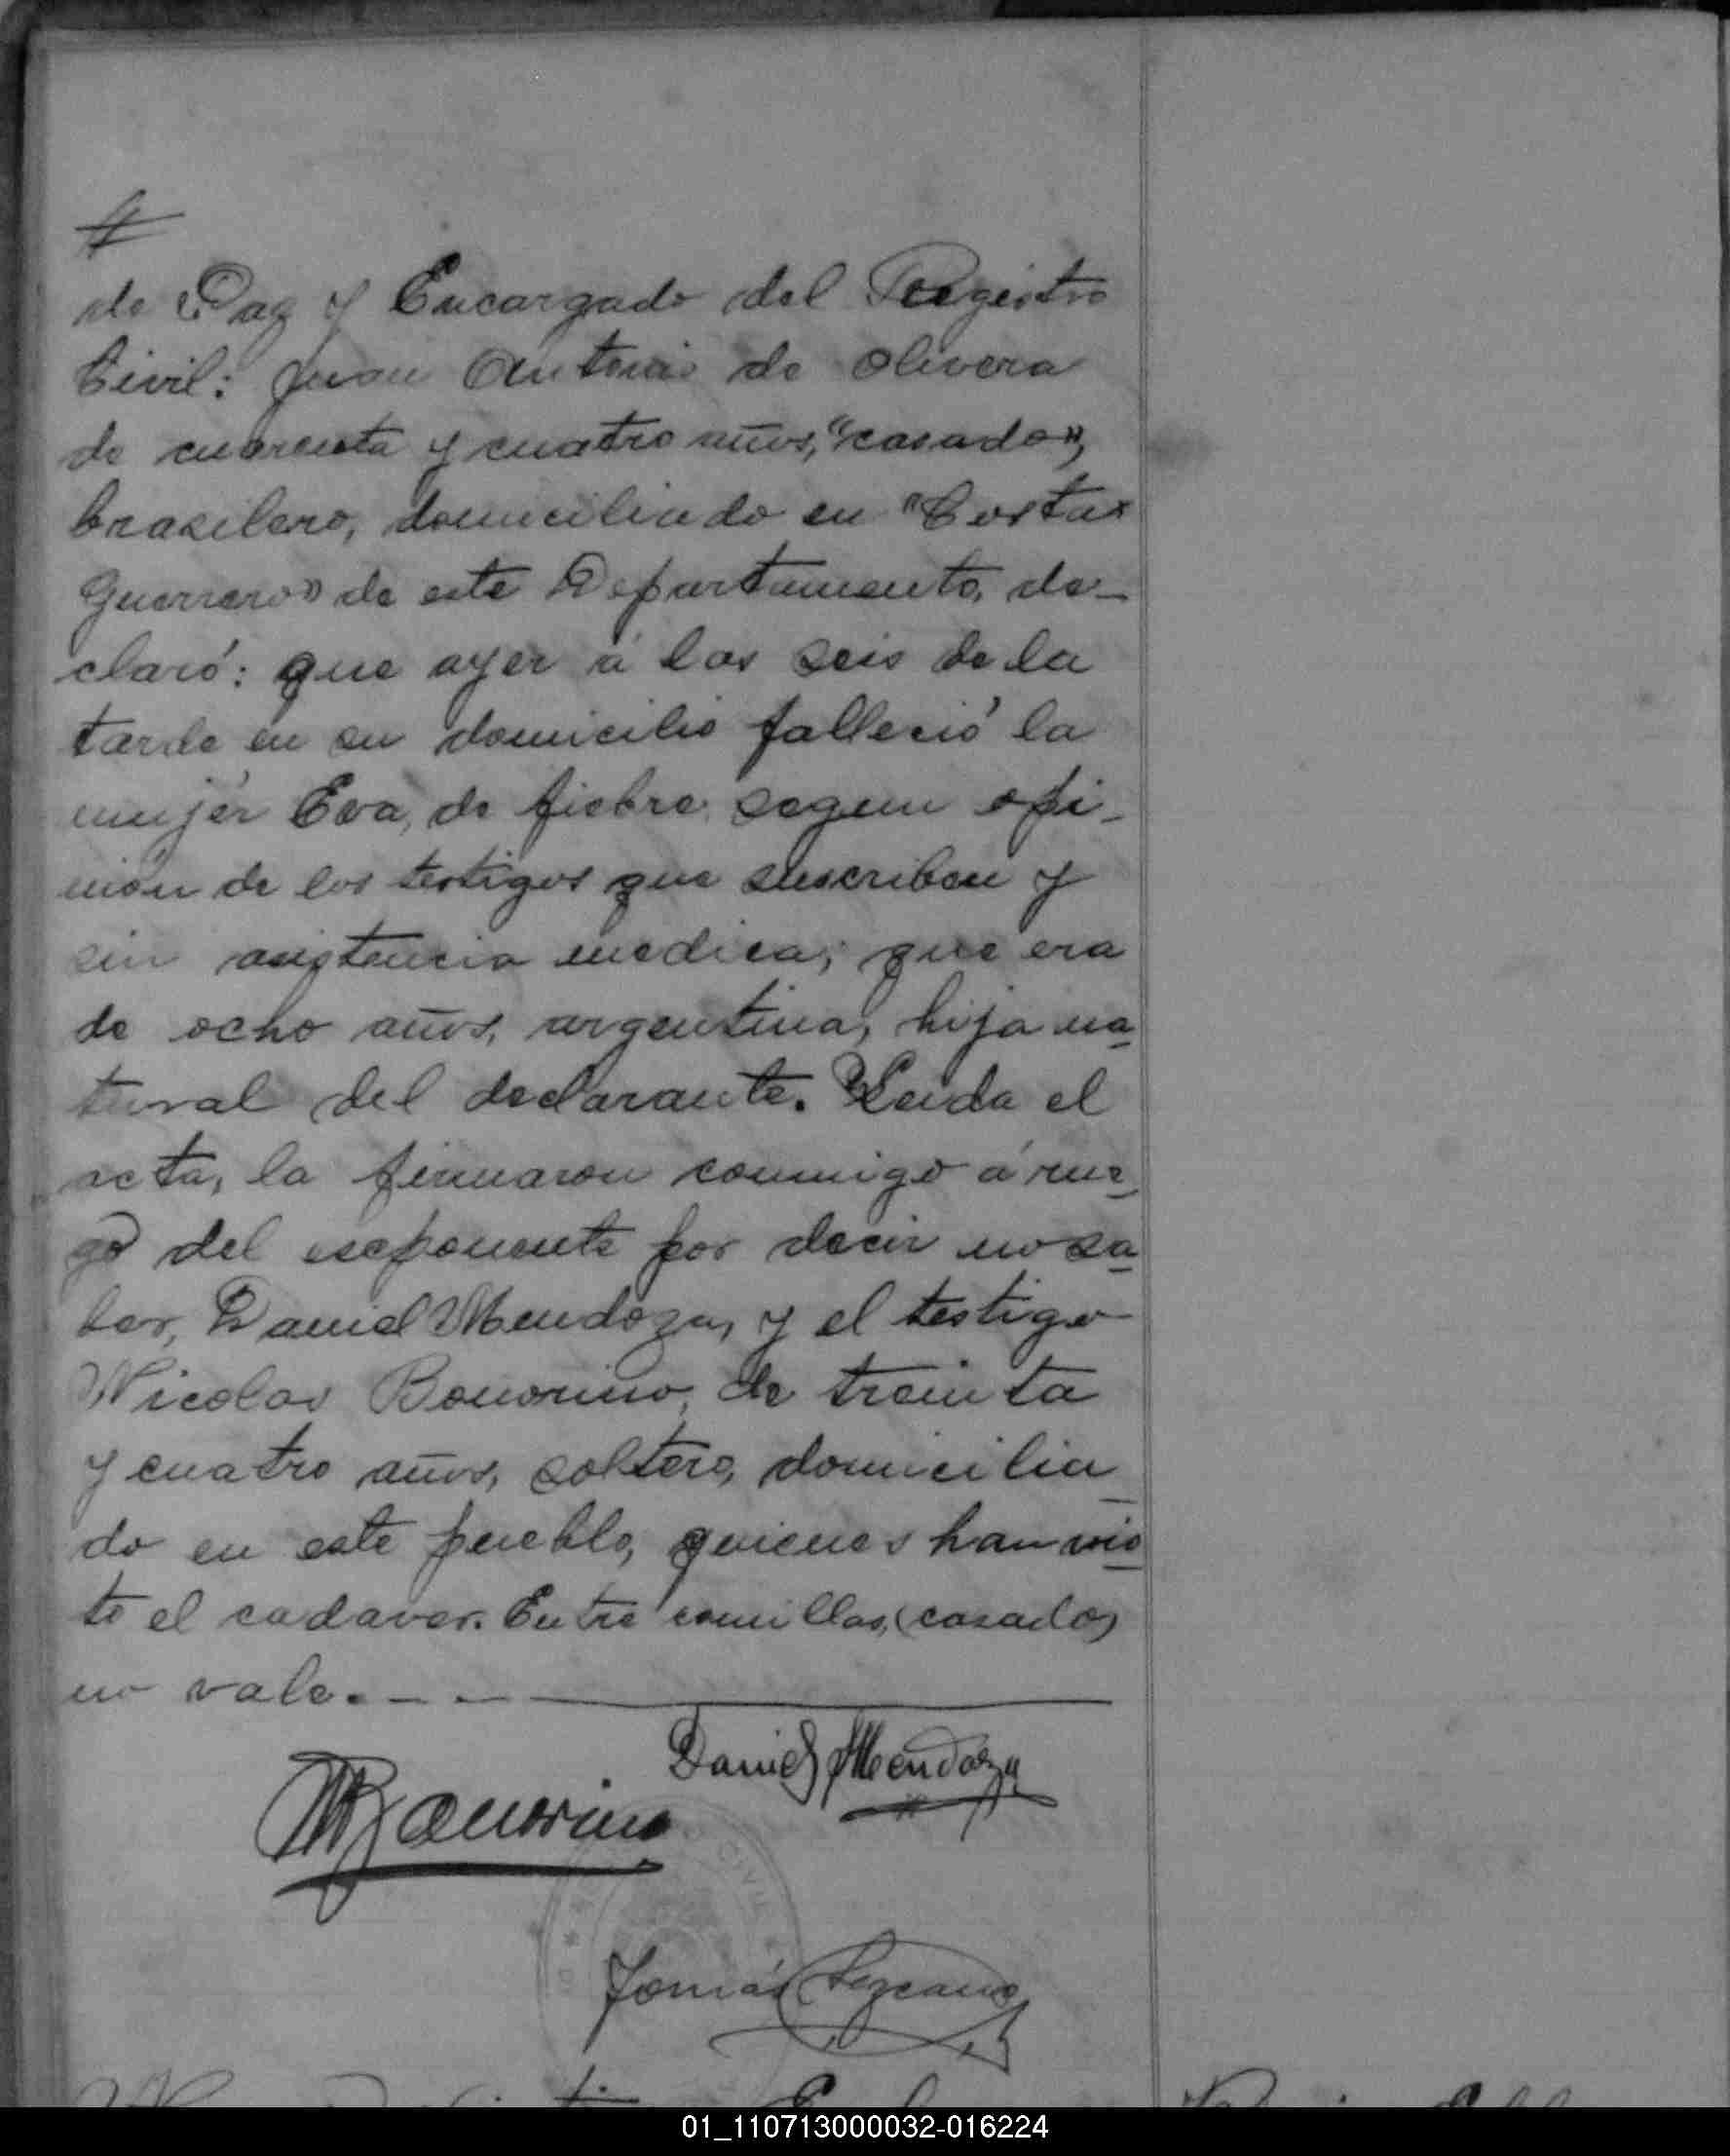 de Paz y Encargado del Registro
Civil: Juan Antonio de Olivera
de cuarenta y cuatro años, "casado",
brasilero, domiciliado en "Costa
Guerrero" de este Departamento, de-
claró: que ayer á las seis de la
tarde en su domicilio falleció la
mujer Eva, de fiebre segun opi-
nion de los testigos que suscriben y
sin asistencia medica; que era
de ocho años, argentina, hija na-
tural del declarante. Leida el
acta, la firmaron conmigo á rue-
go del esponente por decir no sa-
ber, Daniel Mendoza, y el testigo
Nicolas Bonorino, de treinta
y cuatro años, soltero, domicilia-
do en este pueblo, quienes han vis-
to el cadaver. Entre comillas, (casado)
no vale.
Daniel Mendoza
NBonorino
CIVIL
Tomás Lezcano
01_110713000032-016224